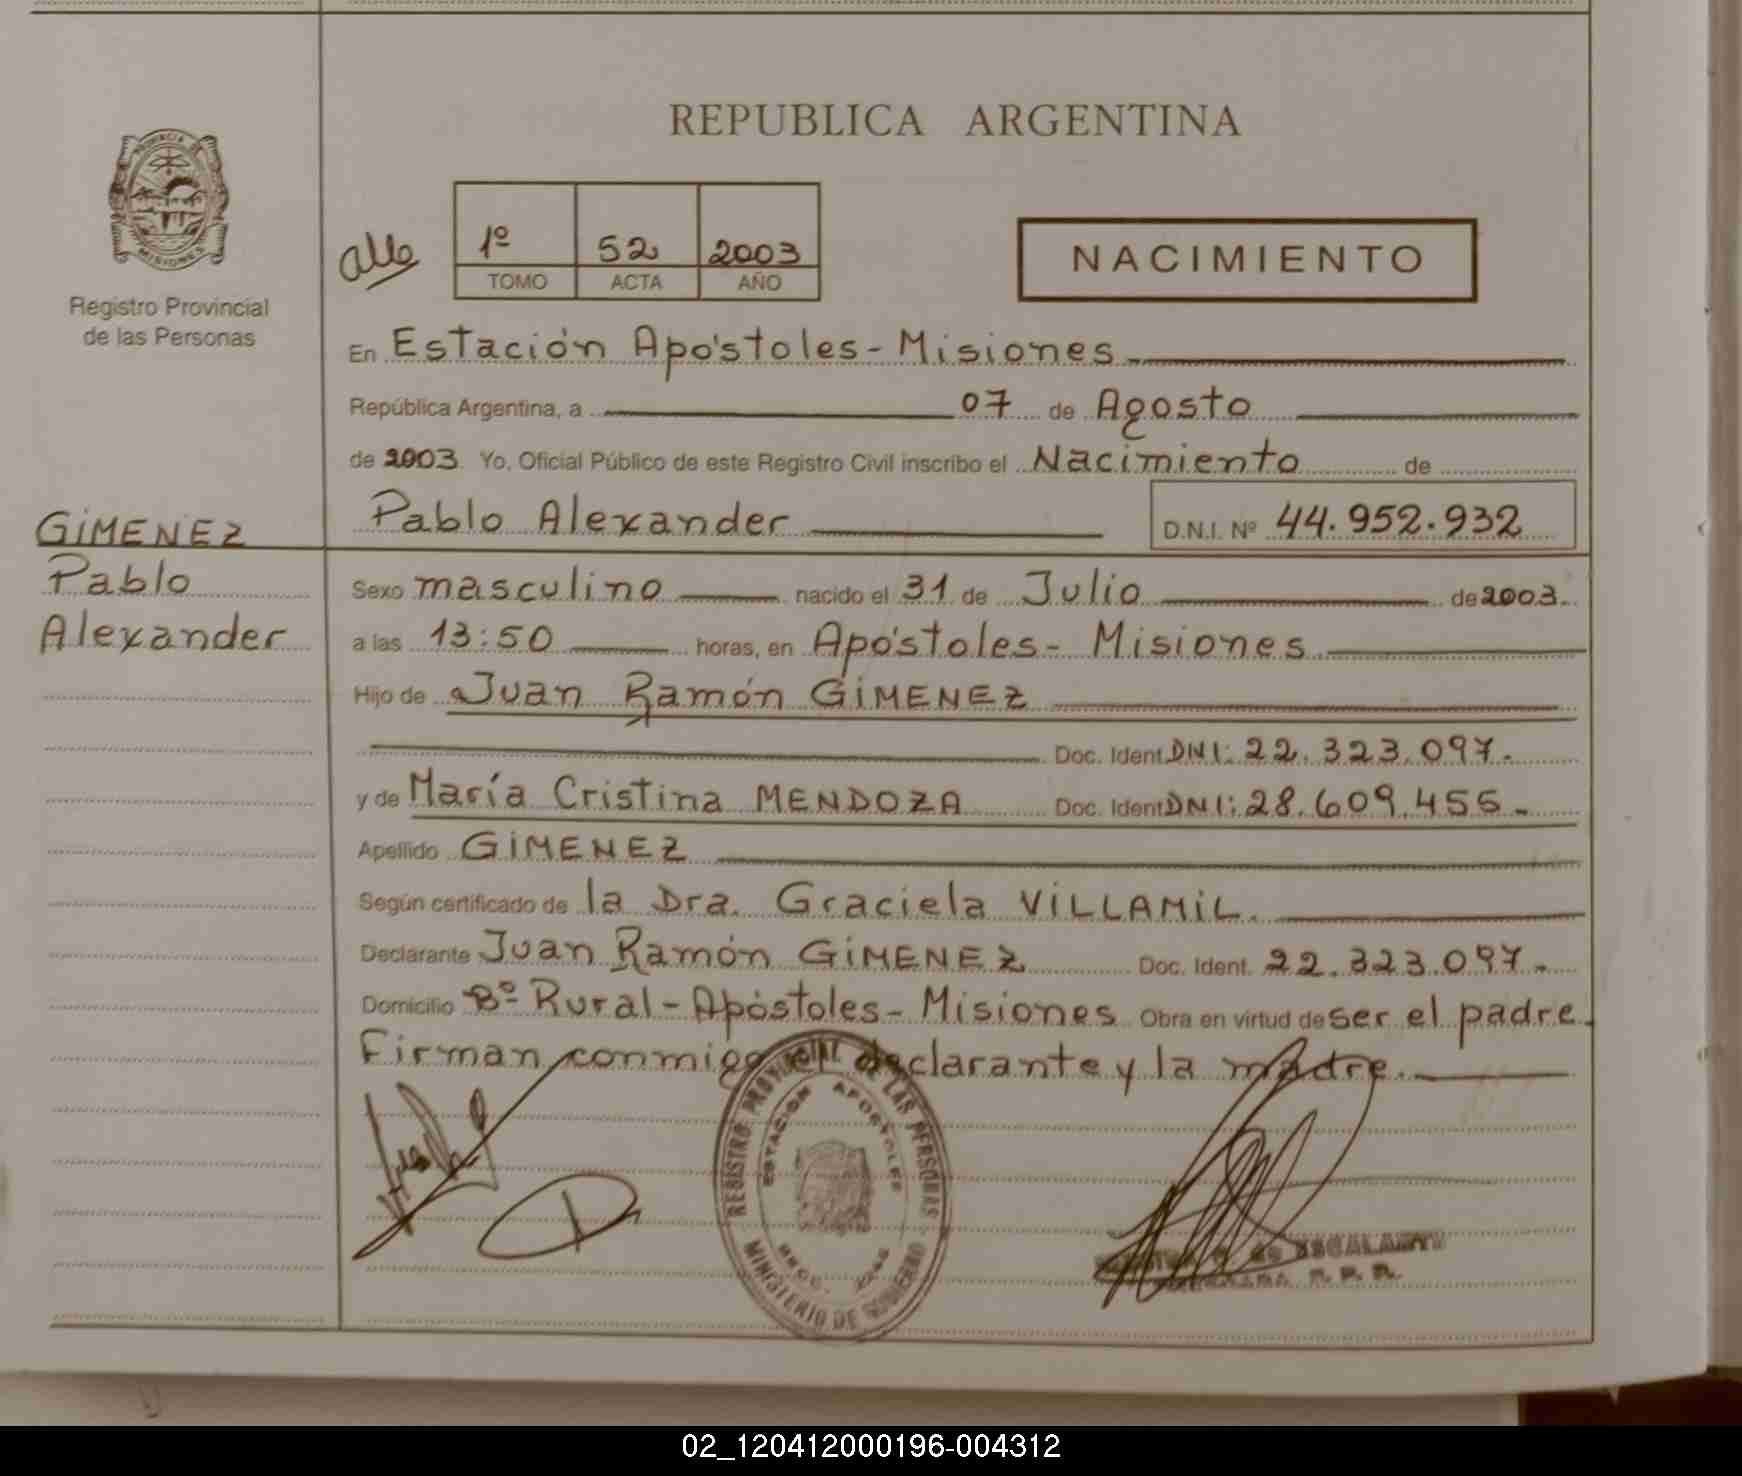 REPUBLICA ARGENTINA
PROVINCIA DE MISIONES
Registro Provincial
de las Personas
1º 52 2003
TOMO ACTA AÑO
NACIMIENTO
En Estación Apóstoles - Misiones
República Argentina, a 07 de Agosto
de 2003 Yo, Oficial Público de este Registro Civil inscribo el Nacimiento de
Pablo Alexander D.N.I. Nº 44.952.932
GIMENEZ
Pablo
Alexander
Sexo masculino nacido el 31 de Julio de 2003
a las 13:50 horas, en Apóstoles - Misiones
Hijo de Juan Ramón GIMENEZ
Doc. Ident. DNI: 22.323.097.
y de María Cristina MENDOZA Doc. Ident. DNI: 28.609.455.
Apellido GIMENEZ
Según certificado de la Dra. Graciela VILLAMIL.
Declarante Juan Ramón GIMENEZ Doc. Ident. 22.323.097.
Domicilio Bº Rural - Apóstoles - Misiones Obra en virtud de ser el padre.
Firman conmigo el declarante y la madre.
REGISTRO PROVINCIAL DE LAS PERSONAS
ESTACION APOSTOLES
MINISTERIO DE GOBIERNO
ESCALANTE
02_120412000196-004312